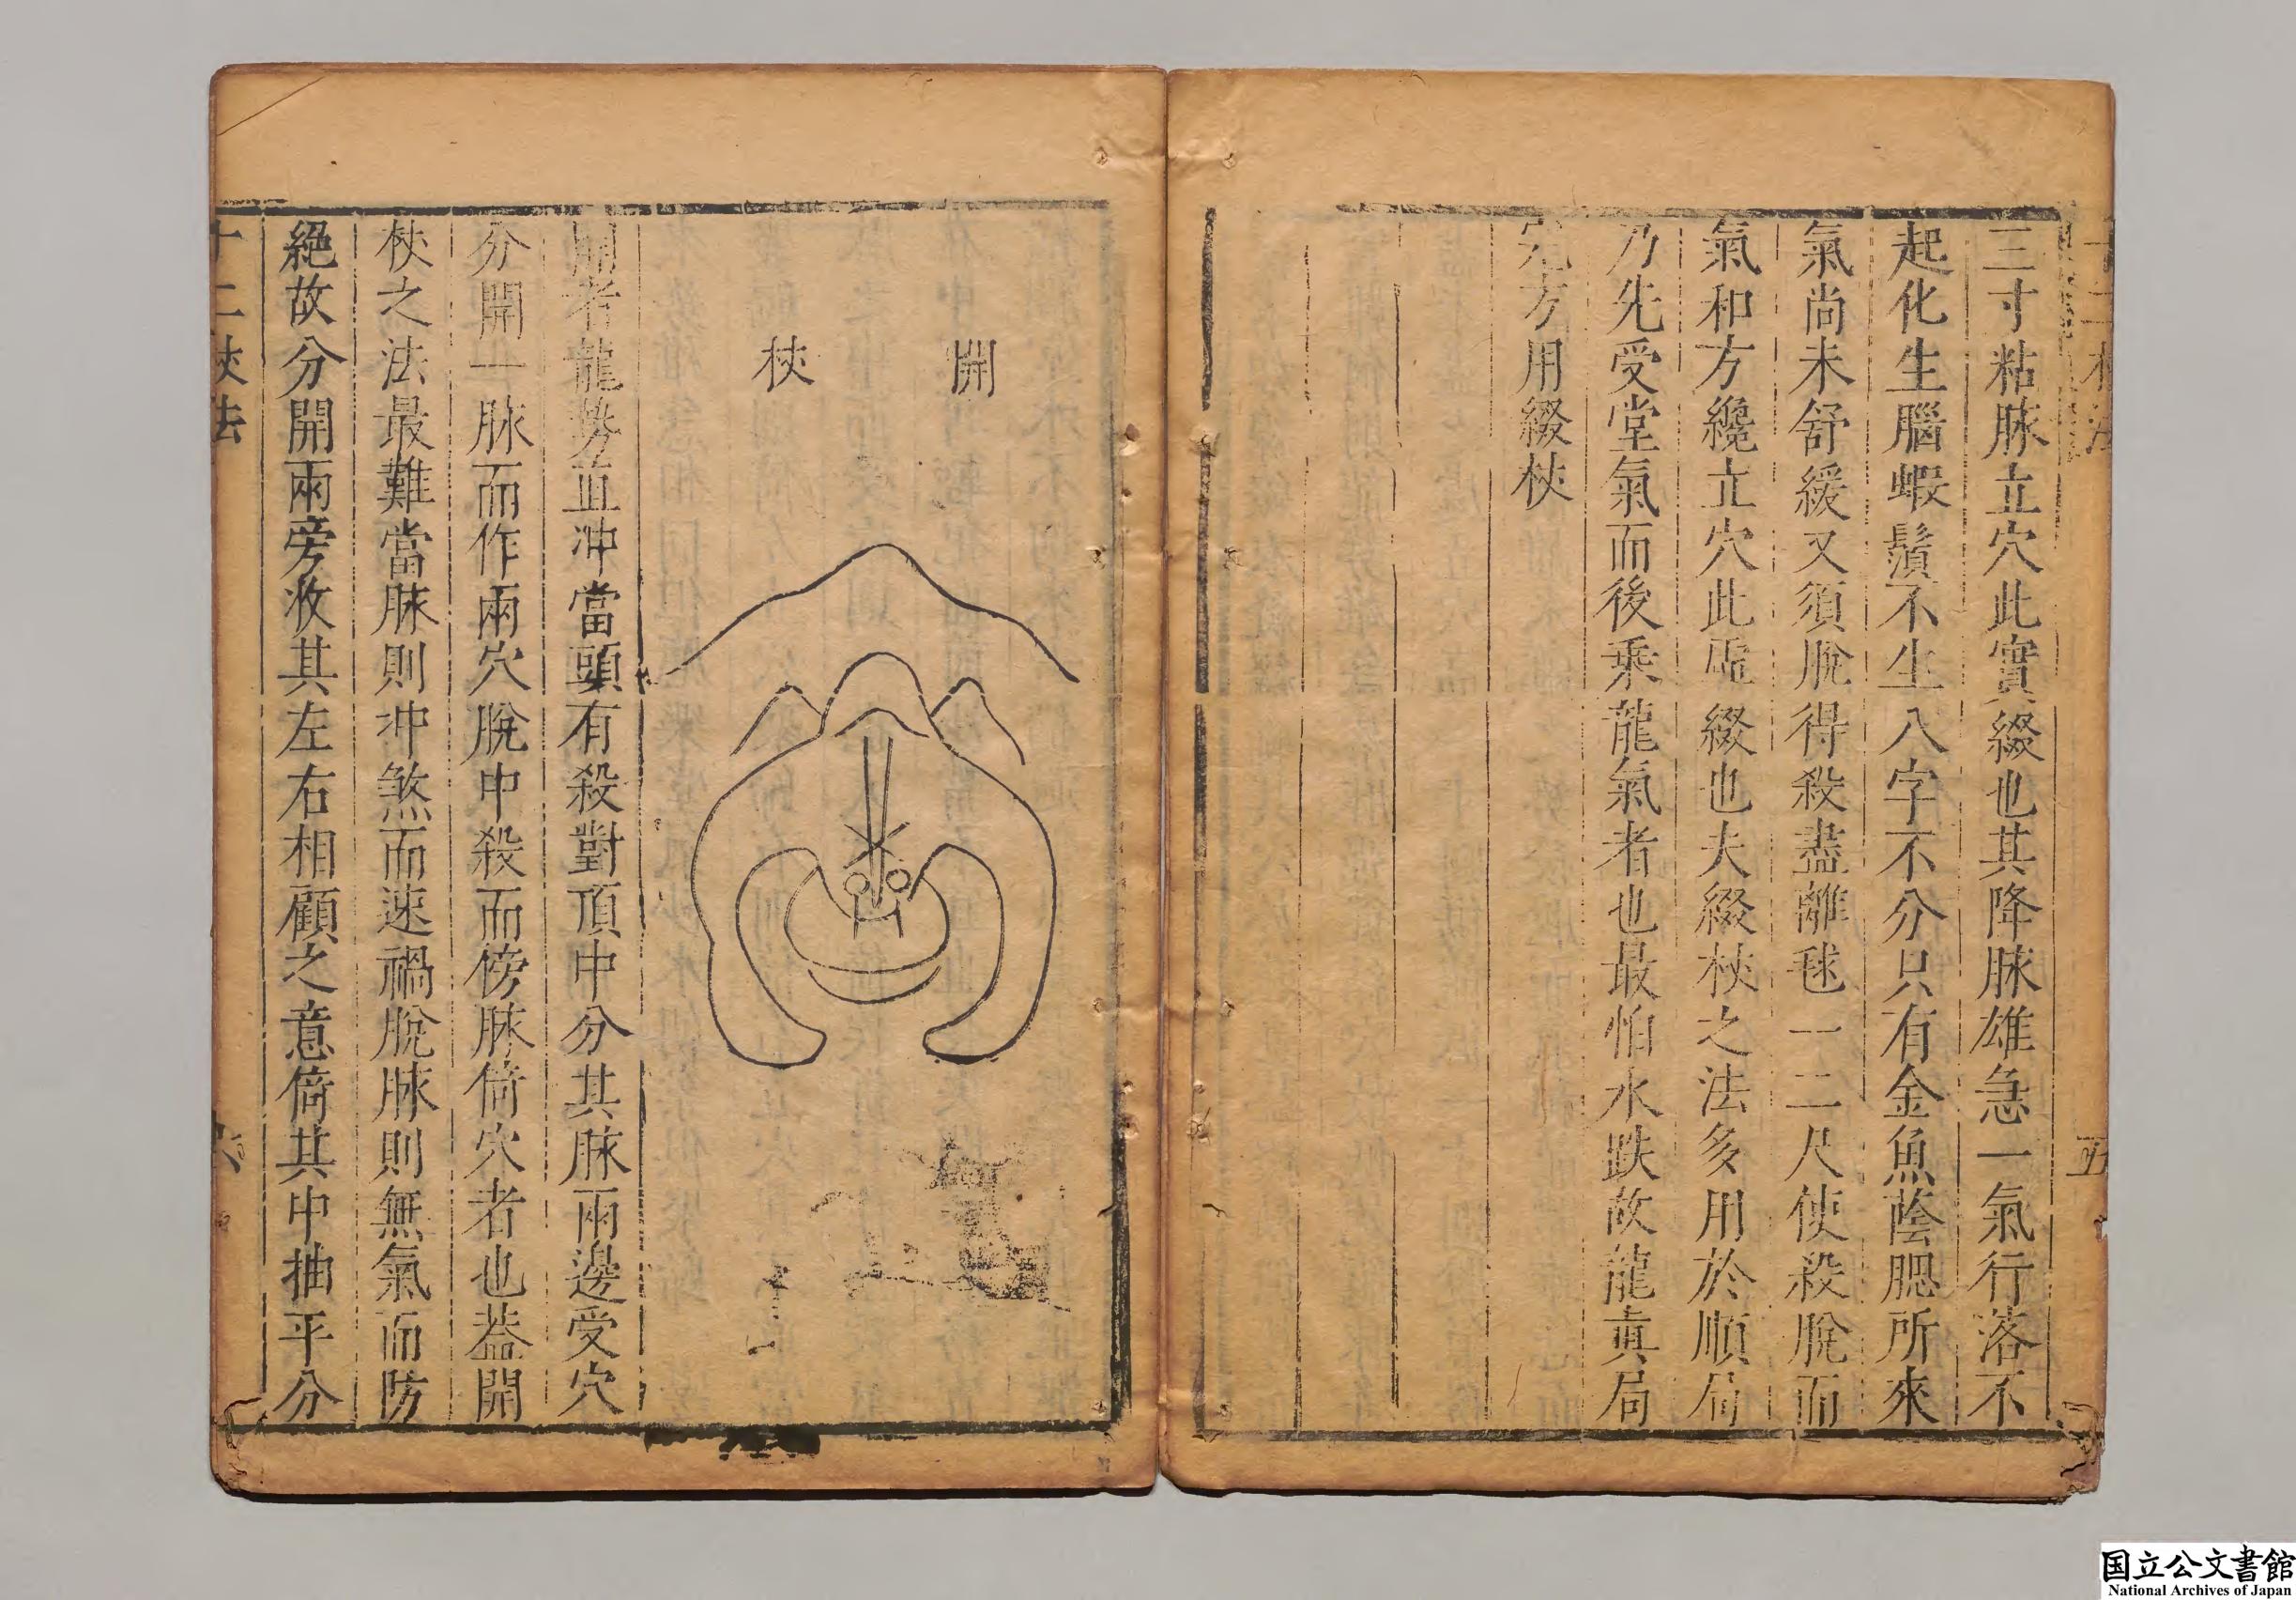 十二杖法
五
三寸粘脉立穴此實綴也其降脉雄急一氣行落不
起化生腦蝦鬚不生八字不分只有金魚蔭腮所來
氣尚未舒緩又須脫得殺盡離毬一二尺使殺脫而
氣和方纔立穴此虛綴也夫綴杖之法多用於順局
乃先受堂氣而後乘龍氣者也最怕水跌故龍真局
完方用綴杖
開
杖
開者龍勢直冲當頭有殺對頂中分其脉兩邊受穴
分開一脉而作兩穴脫中殺而傍脉倚穴者也葢開
杖之法最難當脉則冲煞而速禍脫脉則無氣而防
絕故分開兩旁收其左右相顧之意倚其中抽平分
十二杖法
六
国立公文書館
National Archives of Japan